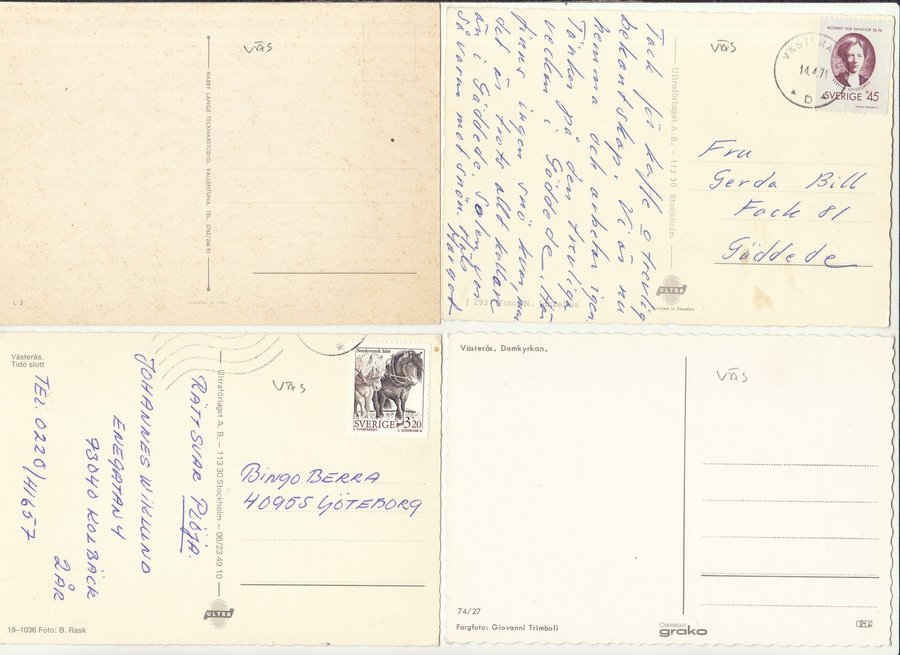 VÄS
HARRY LANGE TECKNARSTUDIO, VALLENTUNA. TEL. 0762/246 93
L 3
Tack för kaffe o trevlig
bekantskap. Vi är nu
hemma och arbetar igen
Tänker på den trevliga
veckan i Gäddede. Här
finns ingen snö kvar, men
det är trots allt kallare
än i Gäddede. Solen gör
så varm mot snön. Hälsn
Margot
Ultraförlaget A. B. – 113 30 Stockholm.
VÄS
VÄSTERÅS
14.4.71
D
RÖSTRÄTT FÖR KVINNOR 50 ÅR
SVERIGE 45
Fru
Gerda Bill
Fack 81
Gäddede
ULTRA
Printed in Sweden
J 293 Foto: N.
Västerås.
Tidö slott
RÄTT SVAR PLÖJA.
JOHANNES WIKLUND
ENEGATAN 4
73040 KOLBÄCK
2 ÅR
TEL. 0220/41657
Ultraförlaget A. B. – 113 30 Stockholm – 08/23 49 10
VÄS
Nordsvensk häst
SVERIGE 3 20
BINGO BERRA
40955 GÖTEBORG
ULTRA
19-1036 Foto: B. Rask
Västerås. Domkyrkan.
VÄS
74/27
Färgfoto: Giovanni Trimboli
grako